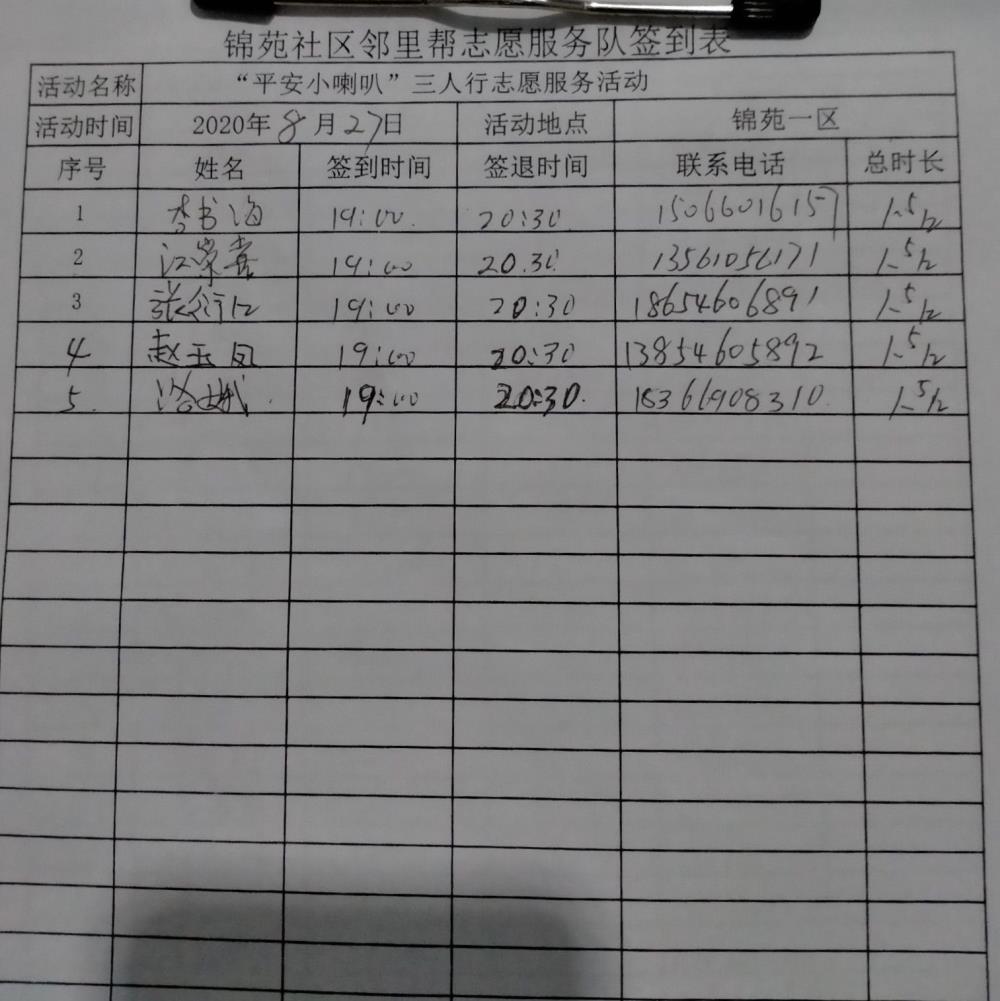 锦苑社区邻里帮志愿服务队签到表
活动名称 “平安小喇叭”三人行志愿服务活动
活动时间 2020年8月27日 活动地点 锦苑一区
序号 姓名 签到时间 签退时间 联系电话 总时长
1 李书海 19:00 20:30 15066016157 1.5h
2 江荣喜 19:00 20.30 13561056171 1.5h
3 张 19:00 20:30 18654606891 1.5h
4 赵玉凤 19:00 20:30 13854605892 1.5h
5. 19:00 20:30. 18366908310. 1.5h